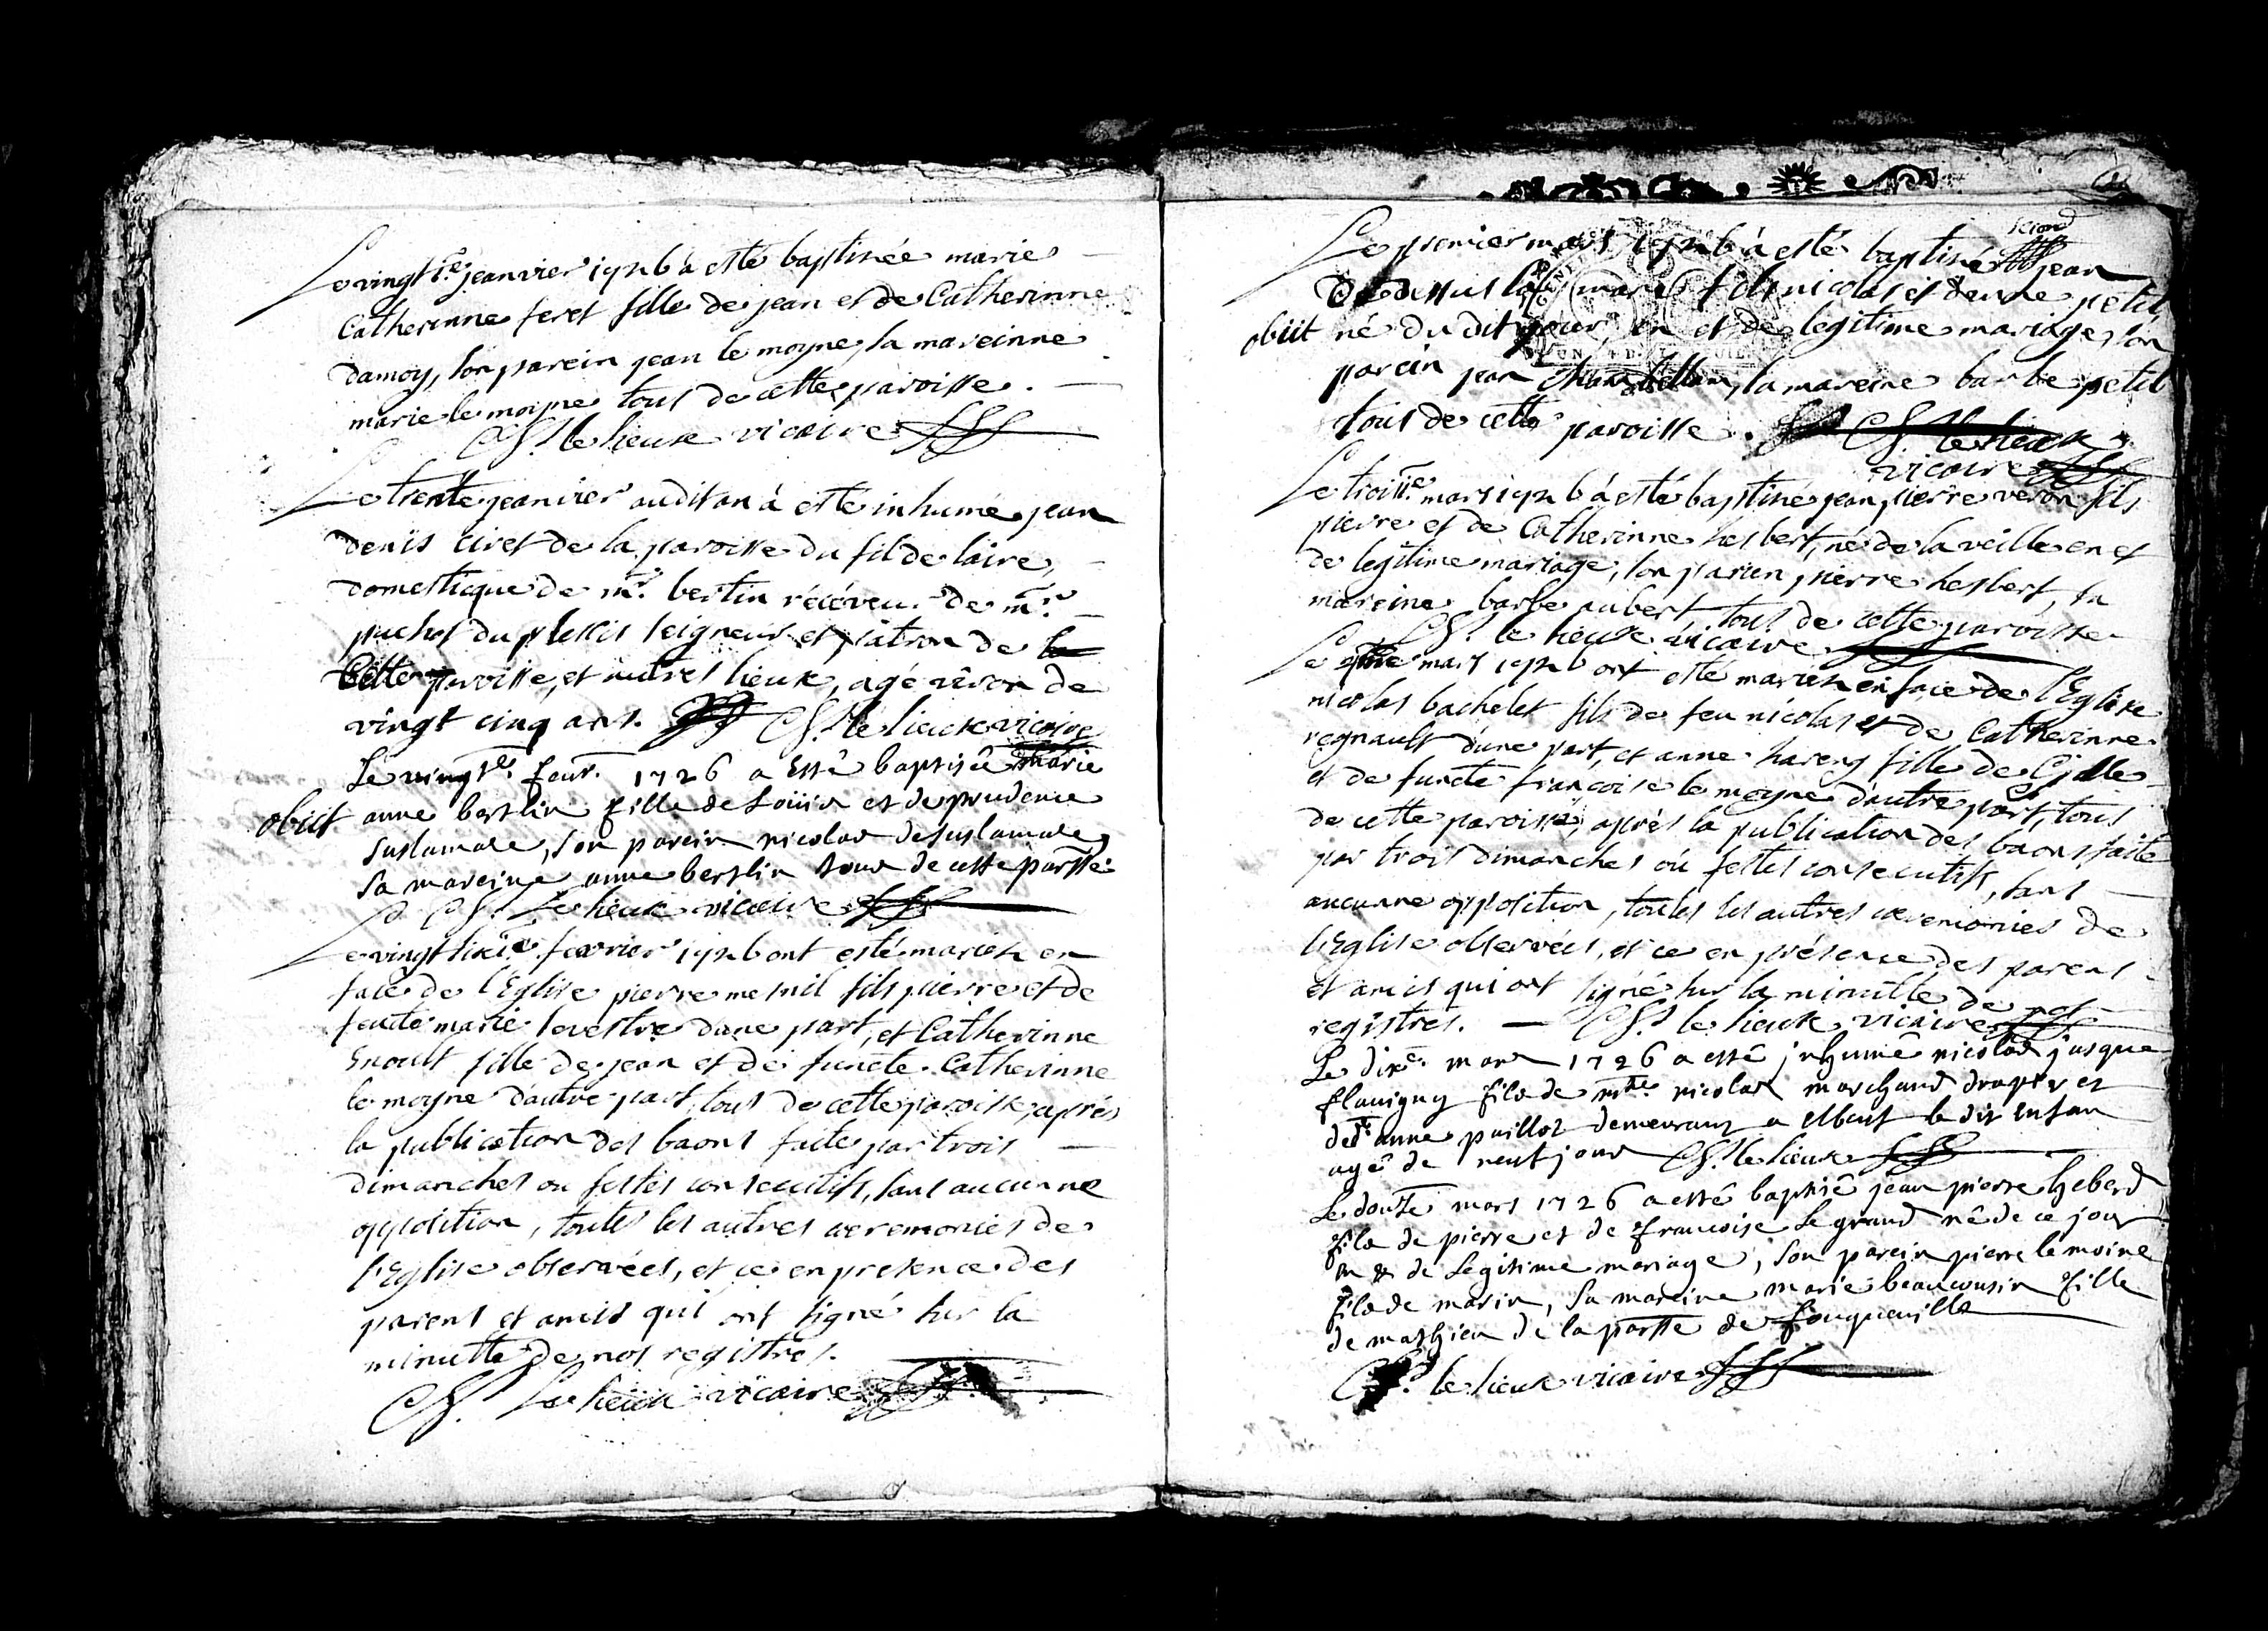 Le vingt 1e. jeanvier 1726 a esté baptisée marie
Catherinne feret fille de jean et de Catherinne
damoy, son parein jean le moyne, sa mareinne
marie le moyne tous de cette paroisse.
Ch. le lieux vicaire
Le trente jeanvier audit an à esté inhumé jean
denis ciret de la paroisse du fil de laire,
domestique de mr. bertin récéveur de mr.
puchot du plessis seigneur et patron de
Cette paroisse, et autres lieux, agé viron de
vingt cinq ans. Ch. le lieux vicaire
Le vingte. feur. 1726 a Esté baptisée marie
obiit anne bertin fille de Loüis et de prudence
suslamare, son parein nicolas desuslamare
sa mareine anne bertin tous de cette parsse.
Ch. Le lieux vicaire
Le vingt sixie. fevrier 1726 ont esté mariez en
face de l'Eglise pierre mesnil fils pierre et de
feüte marie levestre dune part, et Catherinne
Enoult fille de jean et de functe Catherinne
le moyne dautre part, tous de cette paroisse, aprés
la publication des baons faite par trois
dimanches ou festes consecutifs, sans aucunne
opposition, toutes les autres ceremonies de
l'Eglise observées, et ce en presence des
parens et amis qui ont signé sur la
minutte de nos registres.
Ch. Le lieux vicaire
second
Le premier mars 1726 à esté baptisé jean
fils nicolas et de petit
obiit né du dit jour, en et de legitime mariage, son
parein jean, la mareine barbe petit
tous de cette paroisse. Ch. le lieux
vicaire
Le troisie. mars 1726 à esté baptisé jean pierre veron fils
pierre et de Catherinne hesbert, né de la veille en et
de legitime mariage, son parein pierre hesbert, sa
mareine barbe aubert tous de cette paroisse
Ch. le lieux vicaire
Le mars 1726 ont esté mariéz en face de l'Eglise
nicolas bachelet fils de feu nicolas et de Catherinne
regnault d'une part, et anne hareng fille de Gille
et de functe françoise le moyne d'autre part, tous
de cette paroisse, après la publication des baons faite
par trois dimanches où festes consecutifs, sans
aucunne opposition, toutes les autres ceremonies de
l'Eglise observées, et ce en présence des parens
et amis qui ont signé sur la minutte de nos
registres. Ch. le lieux vicaire
Le dixe. mars 1726 a esté jnhumé nicolas jusque
flavigny fils de mtre. nicolas marchand drapier et
de de anne paillot demeurant a elbeuf le dit enfan
agé de neuf jours Ch. le lieux
Le douze mars 1726 a esté baptisé jean pierre heberd
fils de pierre et de francoise Le grand né de ce jour
en & de Legitime mariage, son parein pierre le moine
fils de marin, sa mareine marie beaucousin fille
de mathieu de la parsse de fouqueuille
Ch. le lieux vicaire